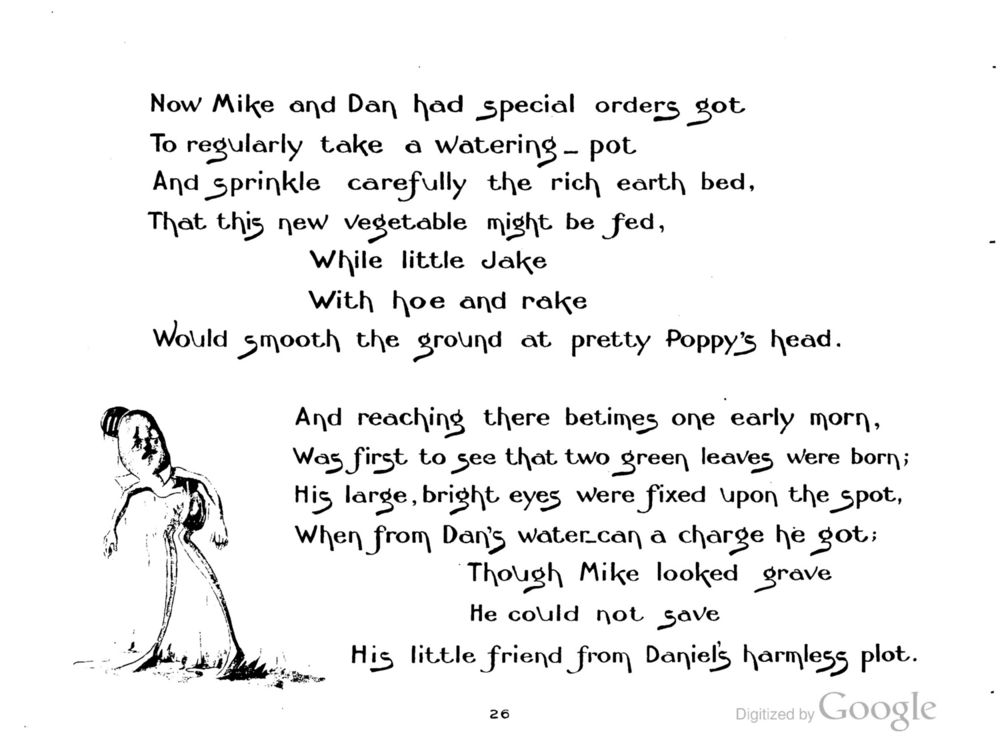 Now Mike and Dan had special orders got
To regularly take a watering-pot
And sprinkle carefully the rich earth bed,
That this new vegetable might be fed,
While little Jake
With hoe and rake
Would smooth the ground at pretty Poppy's head.
And reaching there betimes one early morn,
Was first to see that two green leaves were born;
His large, bright eyes were fixed upon the spot,
When from Dan's water-can a charge he got;
Though Mike looked grave
He could not save
His little friend from Daniel's harmless plot.
26
Digitized by Google